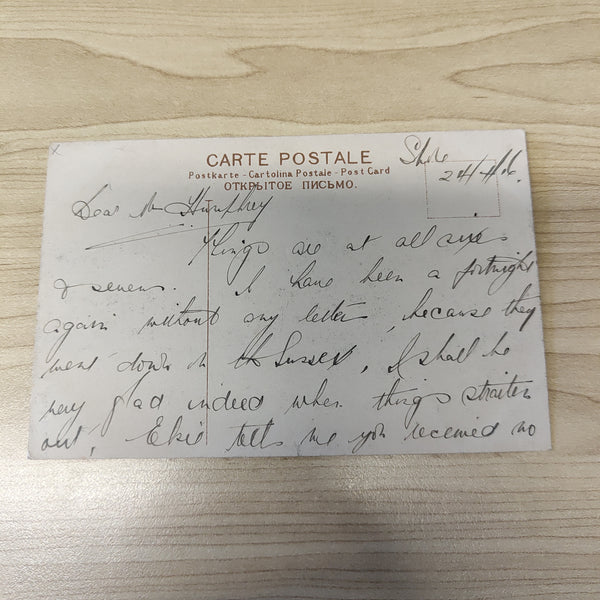 CARTE POSTALE
Postkarte - Cartolina Postale - Post Card
ОТКРЫТОЕ ПИСЬМО.
24.4.16.
Dear Mr Humphrey
Things are at all sixes
& sevens. I have been a fortnight
again without any letter, because they
went down in the Sussex, I shall be
very glad indeed when things straiten
out, Elsie tells me you received no